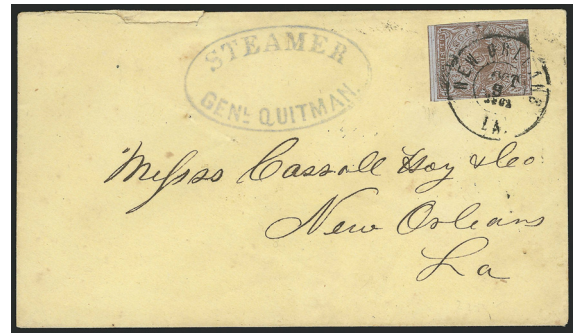 STEAMER
GENL QUITMAN.
NEW ORLEANS
OCT
8
LA.
Messrs Cassoll Hoy & Co
New Orleans
La